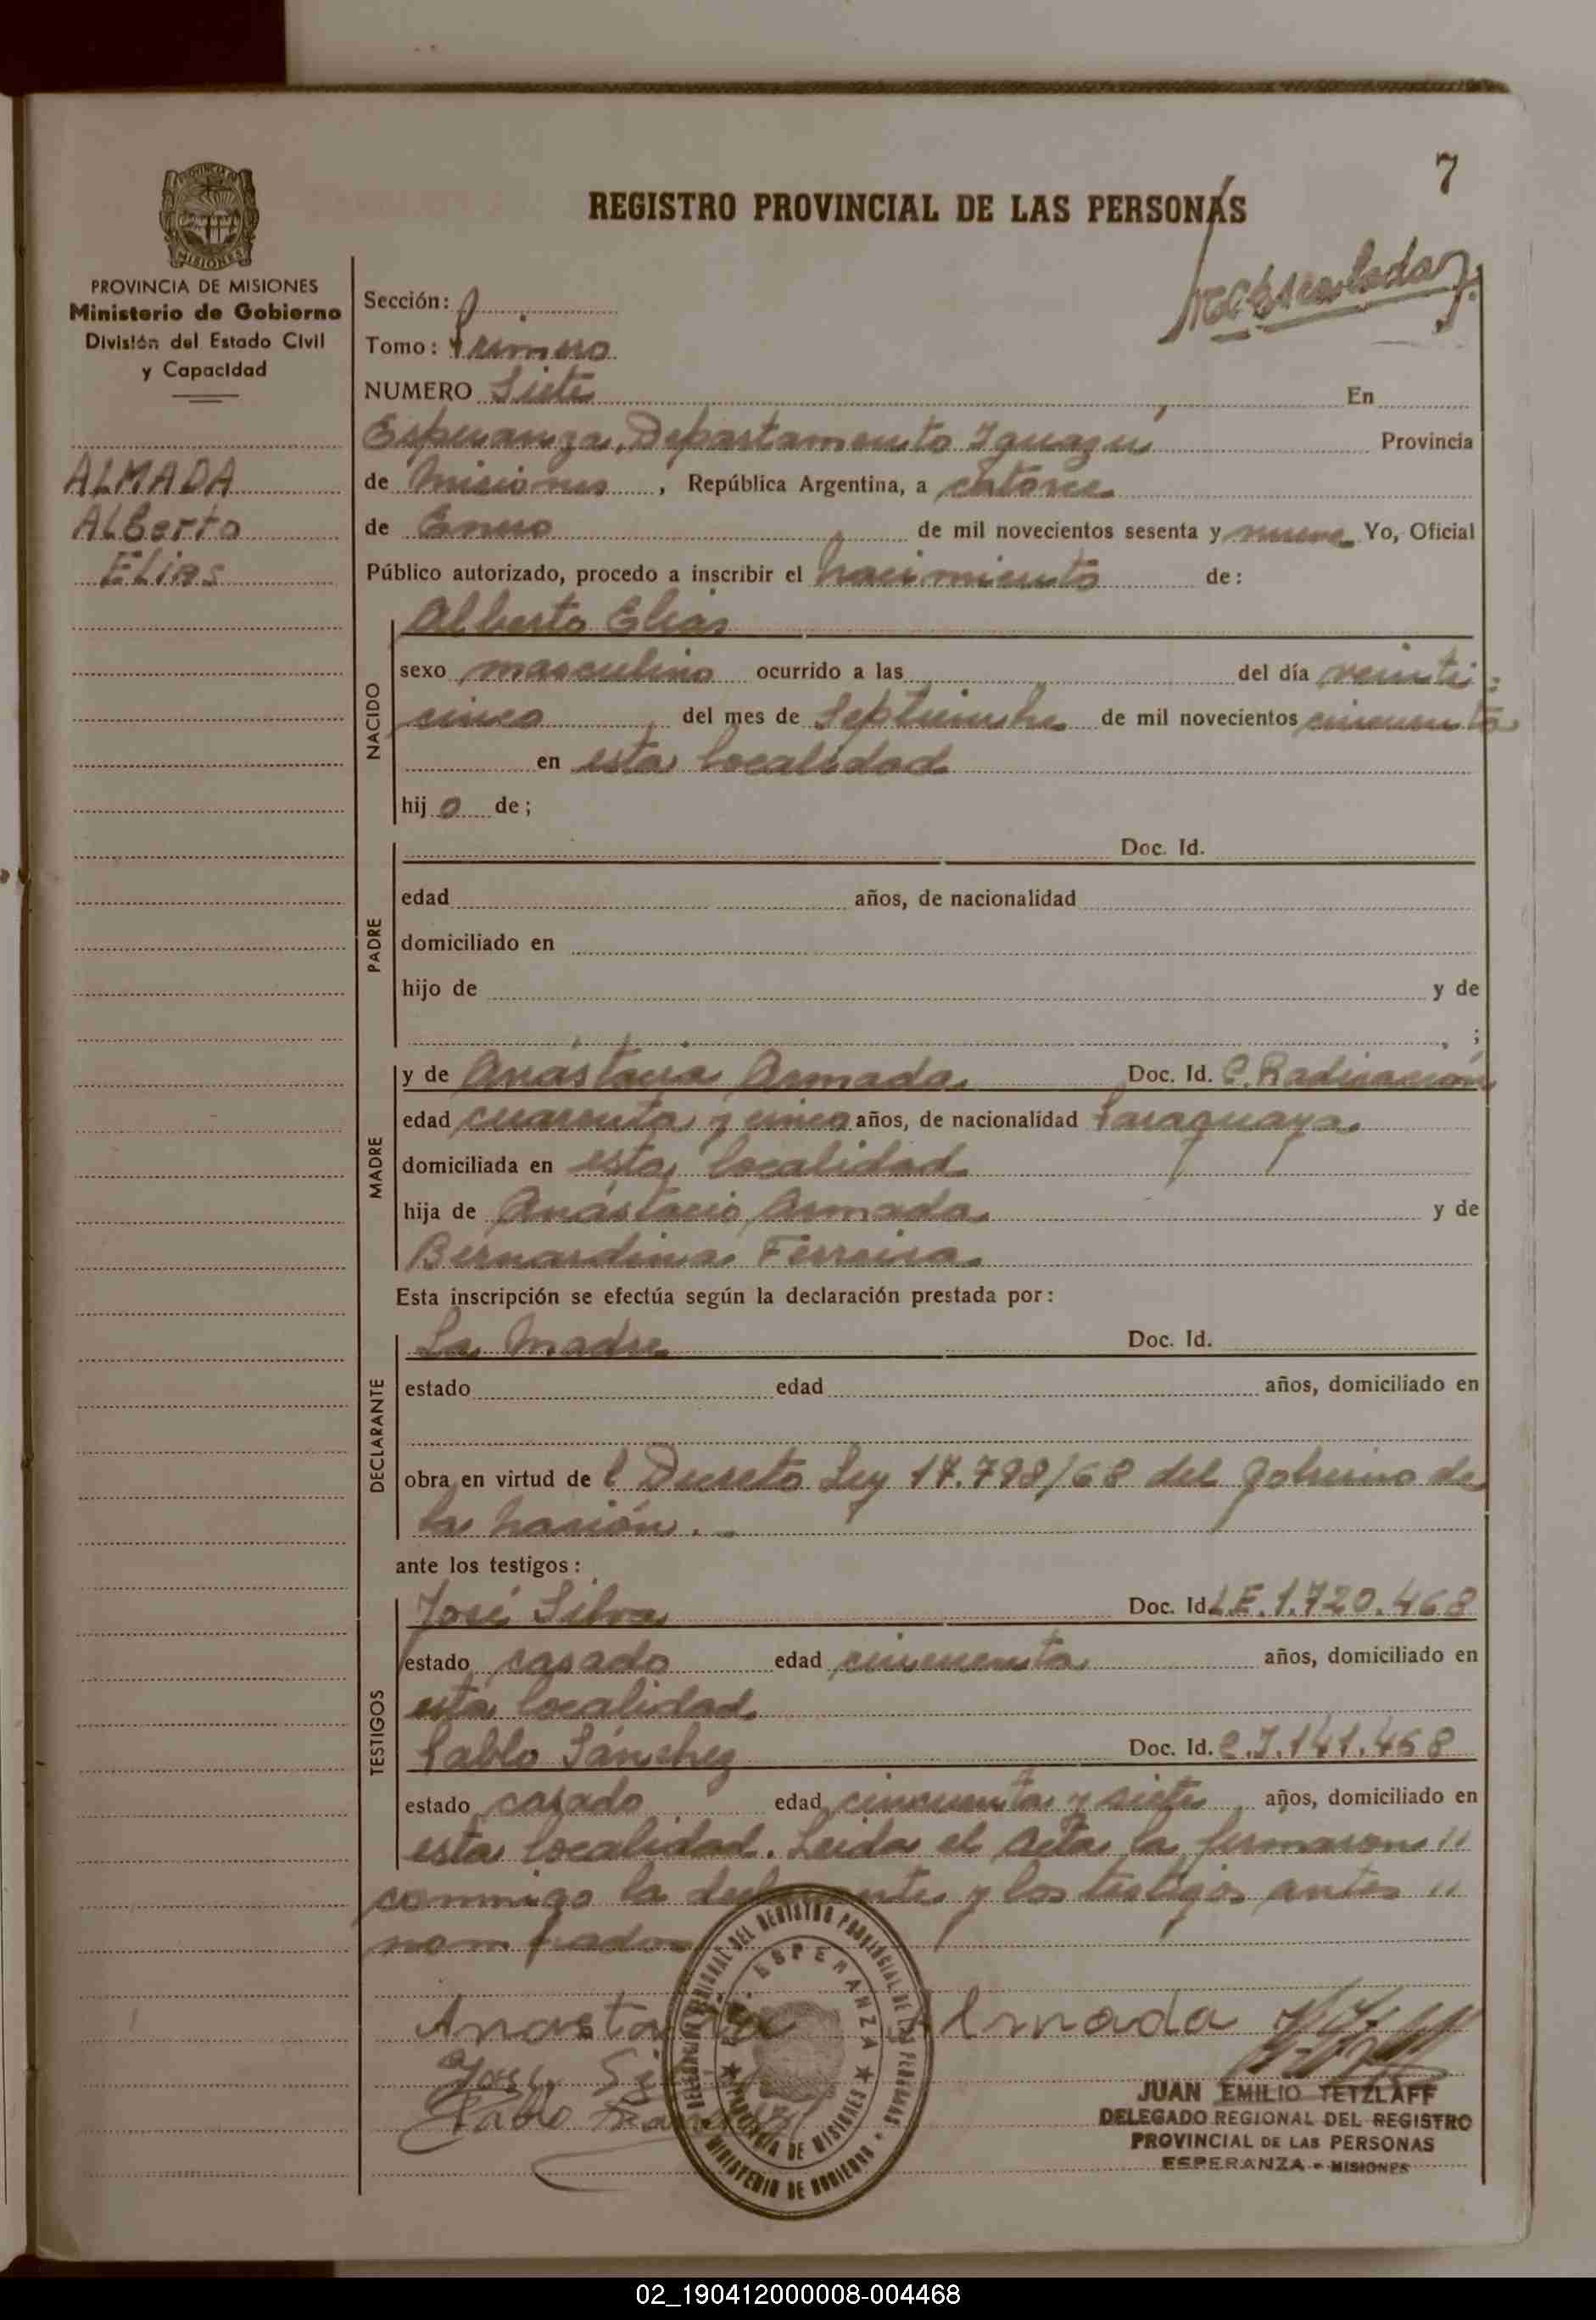 7
REGISTRO PROVINCIAL DE LAS PERSONAS
PROVINCIA DE MISIONES
Ministerio de Gobierno
División del Estado Civil
y Capacidad
ALMADA
ALBerto
ELias
Sección:
Tomo: Primero
NUMERO Siete En
Esperanza, Departamento Iguazú Provincia
de Misiones, República Argentina, a catorce
de Enero de mil novecientos sesenta y nueve Yo, Oficial
Público autorizado, procedo a inscribir el nacimiento de:
NACIDO
Alberto Elias
sexo masculino ocurrido a las del día veinti
cinco del mes de Septiembre de mil novecientos cincuenta
en esta localidad
hijo de;
PADRE
Doc. Id.
edad años, de nacionalidad
domiciliado en
hijo de y de
, ;
MADRE
y de Anástacia Armada Doc. Id. C. Radicación
edad cuarenta y cinco años, de nacionalidad Paraguaya
domiciliada en esta localidad
hija de Anástacio Armada y de
Bernardina Ferreira
Esta inscripción se efectúa según la declaración prestada por:
DECLARANTE
La Madre Doc. Id.
estado edad años, domiciliado en
obra en virtud de l Decreto Ley 17.798/68 del gobierno de
la nación.
ante los testigos:
TESTIGOS
José Silva Doc. Id L.E. 1.720.468
estado casado edad cincuenta años, domiciliado en
esta localidad
Pablo Sánchez Doc. Id. C.I. 141.468
estado casado edad cincuenta y siete años, domiciliado en
esta localidad. Leida el acta la firmaron "
conmigo la declarante y los testigos antes "
nombrados
Anastacia Almada
José
Pablo
DELEGACION REGIONAL DEL REGISTRO PROVINCIAL DE LAS PERSONAS
ESPERANZA
PROVINCIA DE MISIONES
MINISTERIO DE GOBIERNO
JUAN EMILIO TETZLAFF
DELEGADO REGIONAL DEL REGISTRO
PROVINCIAL DE LAS PERSONAS
ESPERANZA - MISIONES
02_190412000008-004468